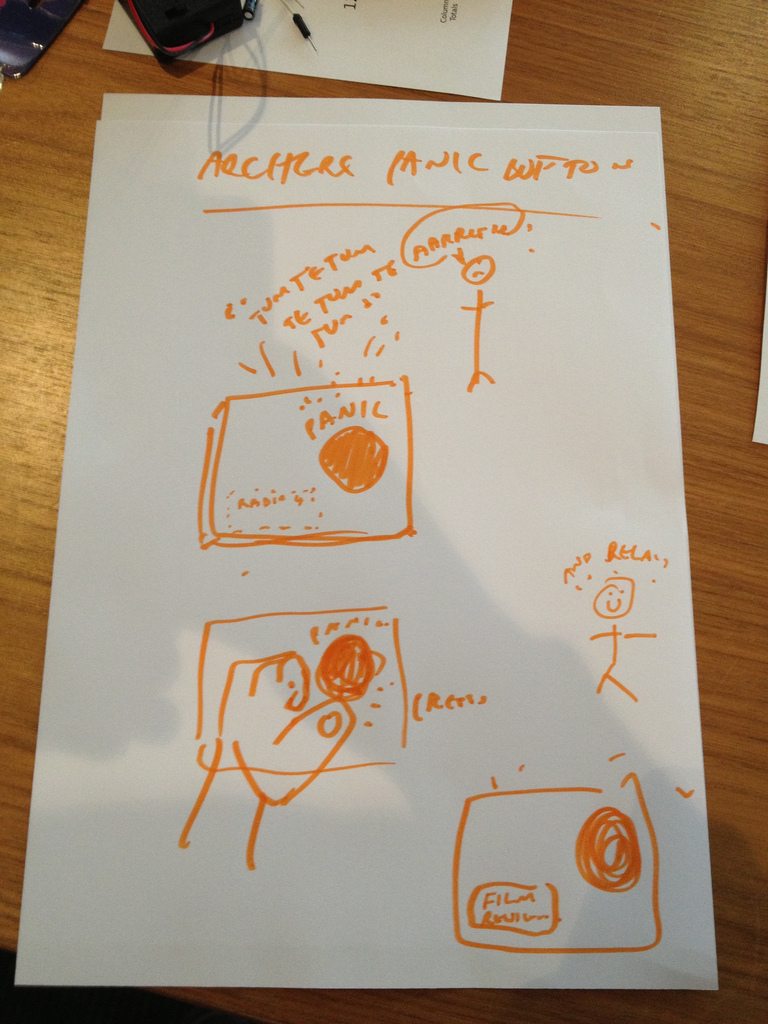 Column
Totals
ARCHERS PANIC BUTTON
AARRGH
" TUM TE TUM
TE TUM TE
TUM "
PANIC
RADIO 4
AND RELAX
PANIC
PRESS
FILM
REVIEW